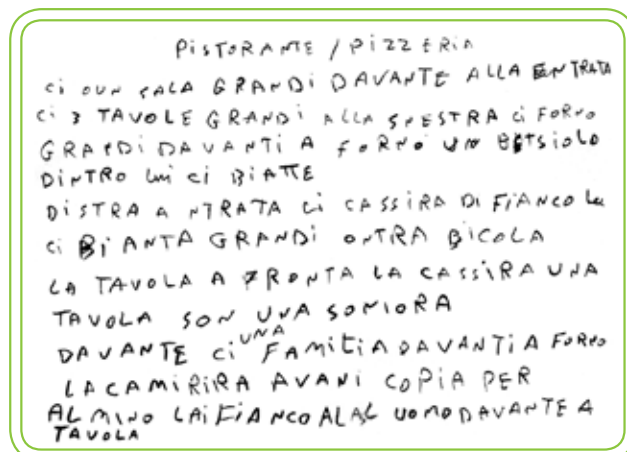 PISTORANTE / PIZZERIA
CI OUN SALA GRANDI DAVANTE ALLA ENTRATA
CI 3 TAVOLE GRANDI ALLA SNESTRA CI FORNO
GRANDI DAVANTI A FORNO UN BETSIOLO
DINTRO LUI CI BIATTE
DISTRA A NTRATA CI CASSIRA DI FIANCO LA
CI BIANTA GRANDI ONTRA BICOLA
LA TAVOLA A FRONTA LA CASSIRA UNA
TAVOLA SON UNA SONIORA
DAVANTE CI UNA FAMILIA DAVANTI A FORNO
LA CAMIRIRA AVANI COPIA PER
AL MINO LAI FIANCO AL AL UOMO DAVANTE A
TAVOLA